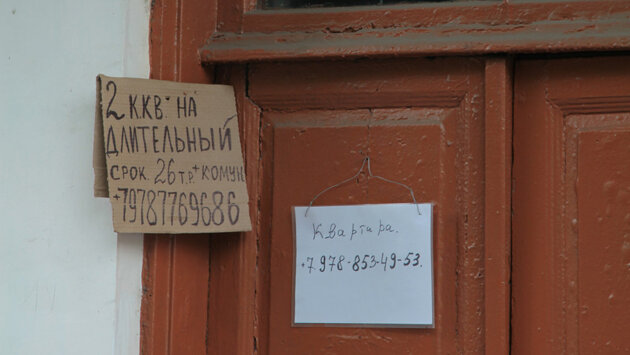 2 ККВ НА
ДЛИТЕЛЬНЫЙ
СРОК. 26 Т.Р.+КОМУН
+79787769686
Квартира.
+7.978-853-49-53.